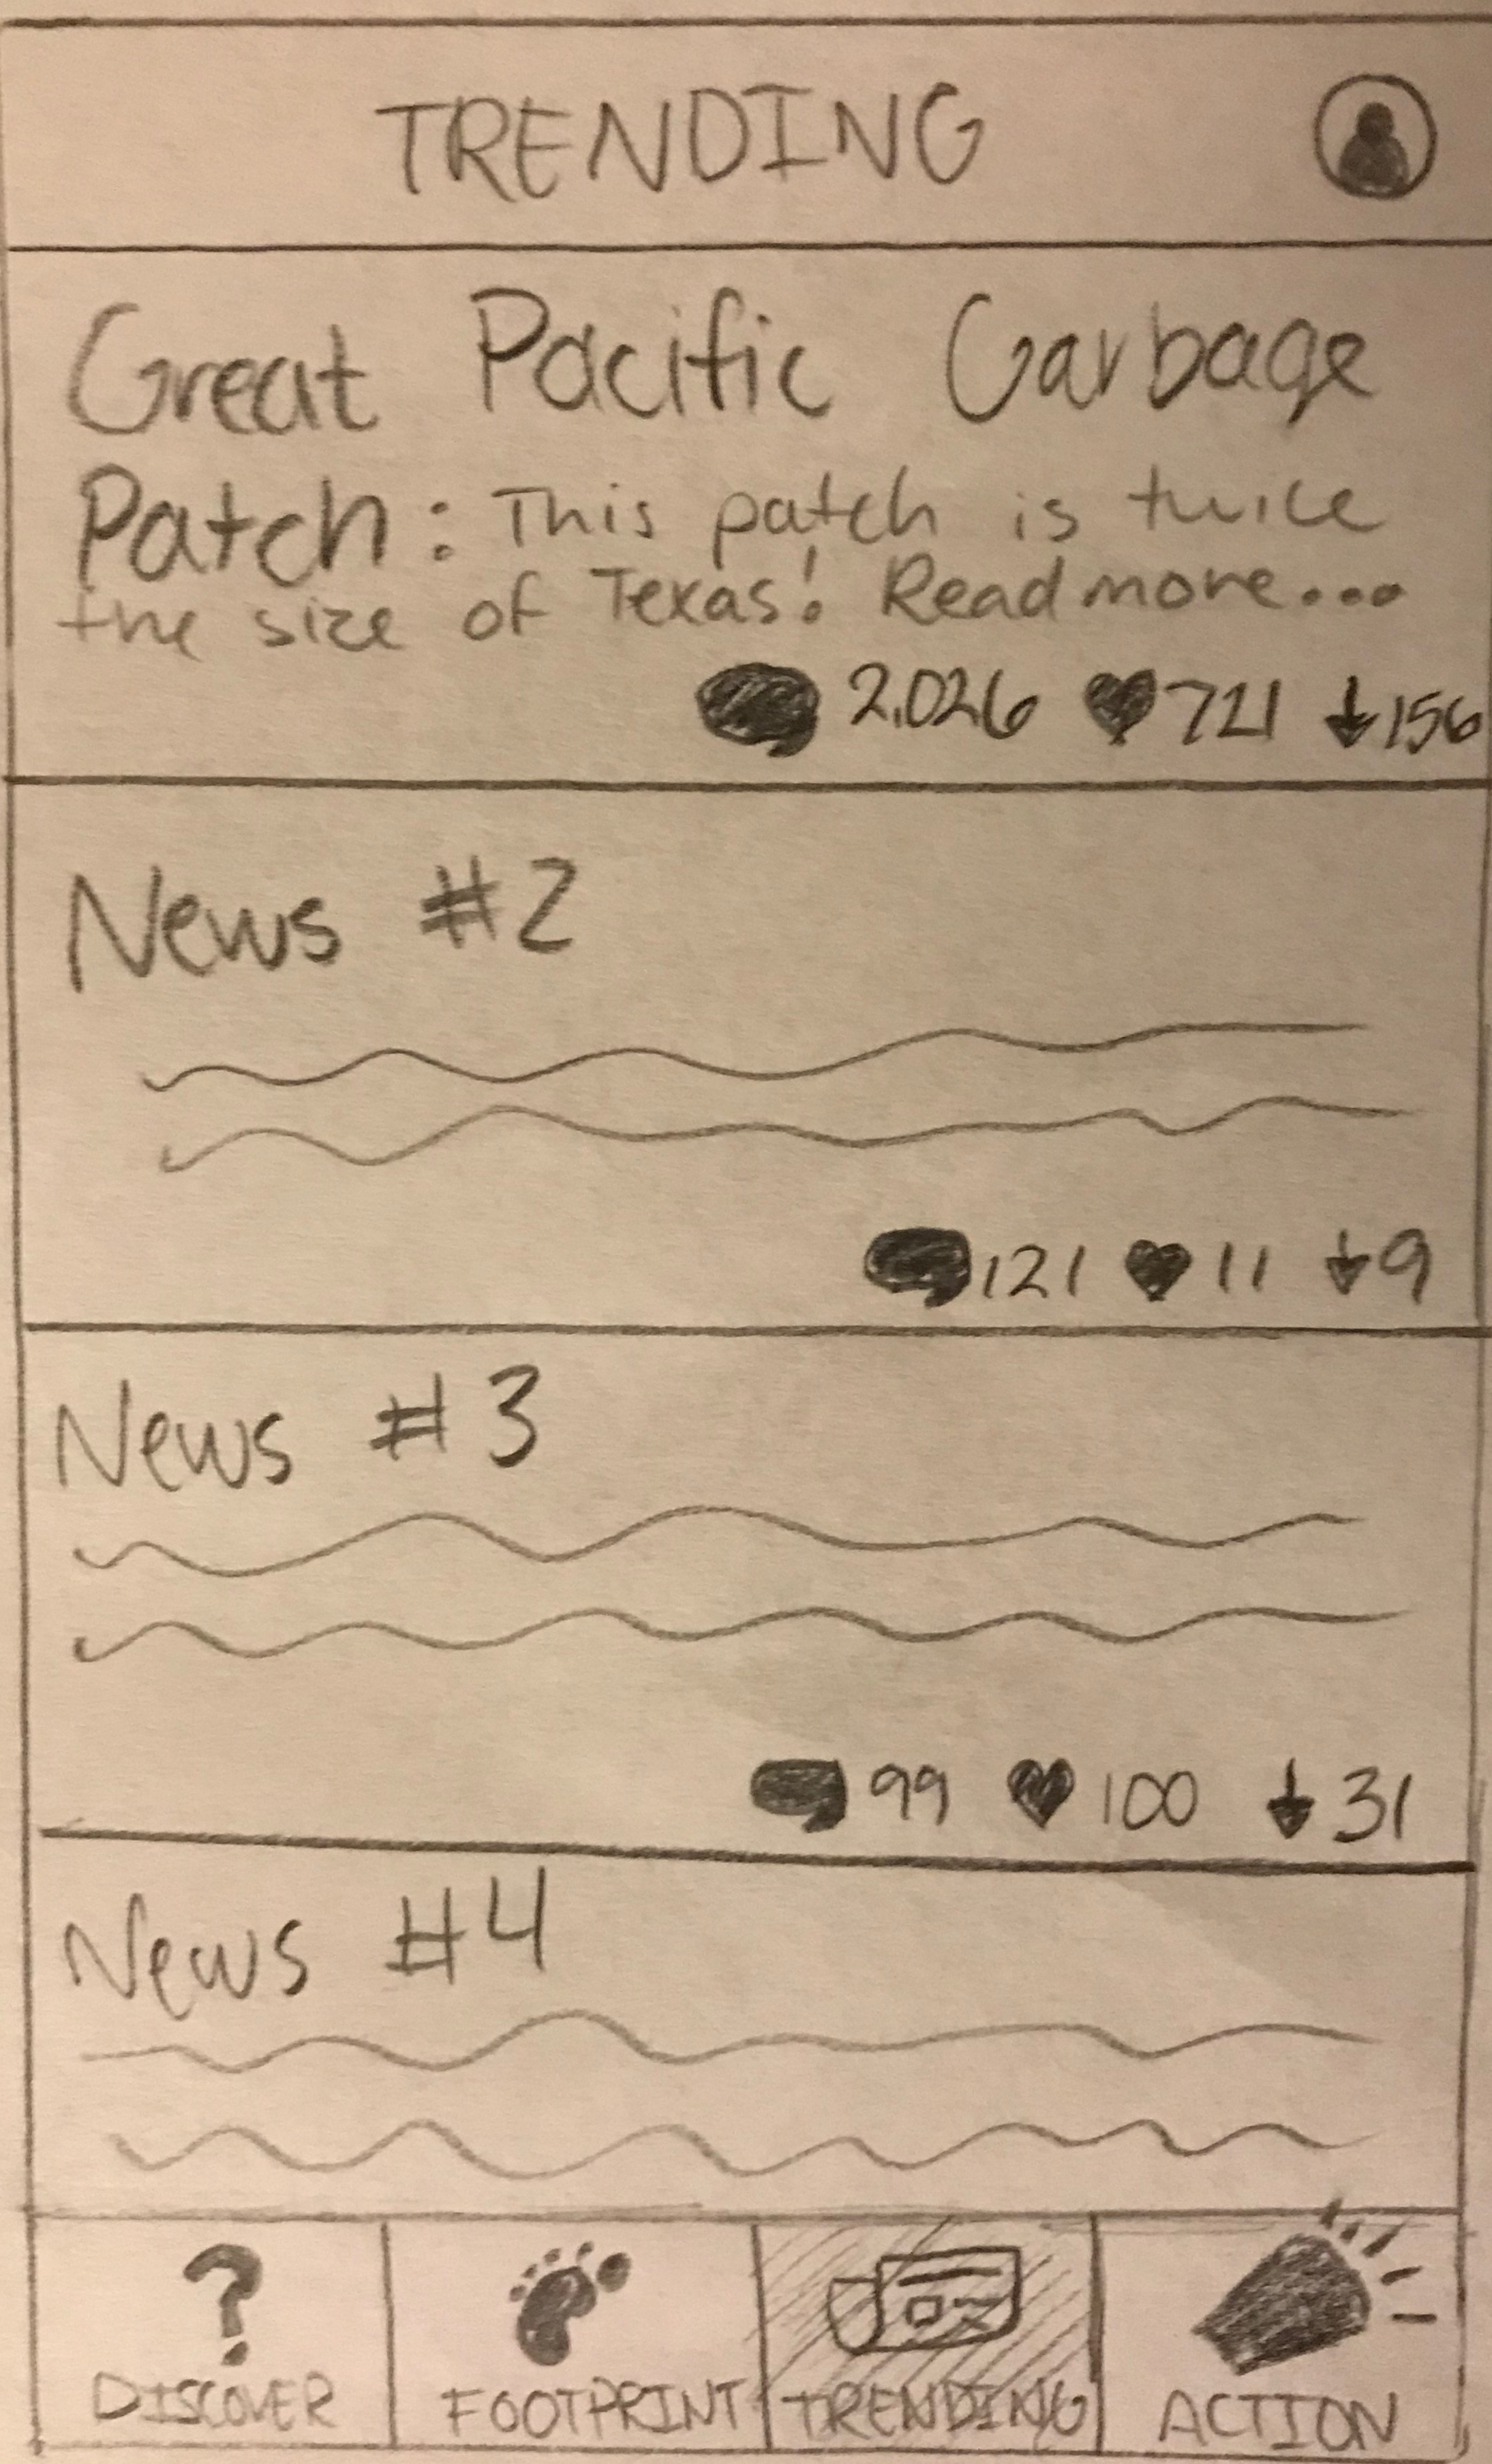 TRENDING
Great Pacific Garbage
Patch: This patch is twice
the size of Texas! Read more...
2,026 721 156
News #2
121 11 9
News #3
99 100 31
News #4
DISCOVER FOOTPRINT TRENDING ACTION